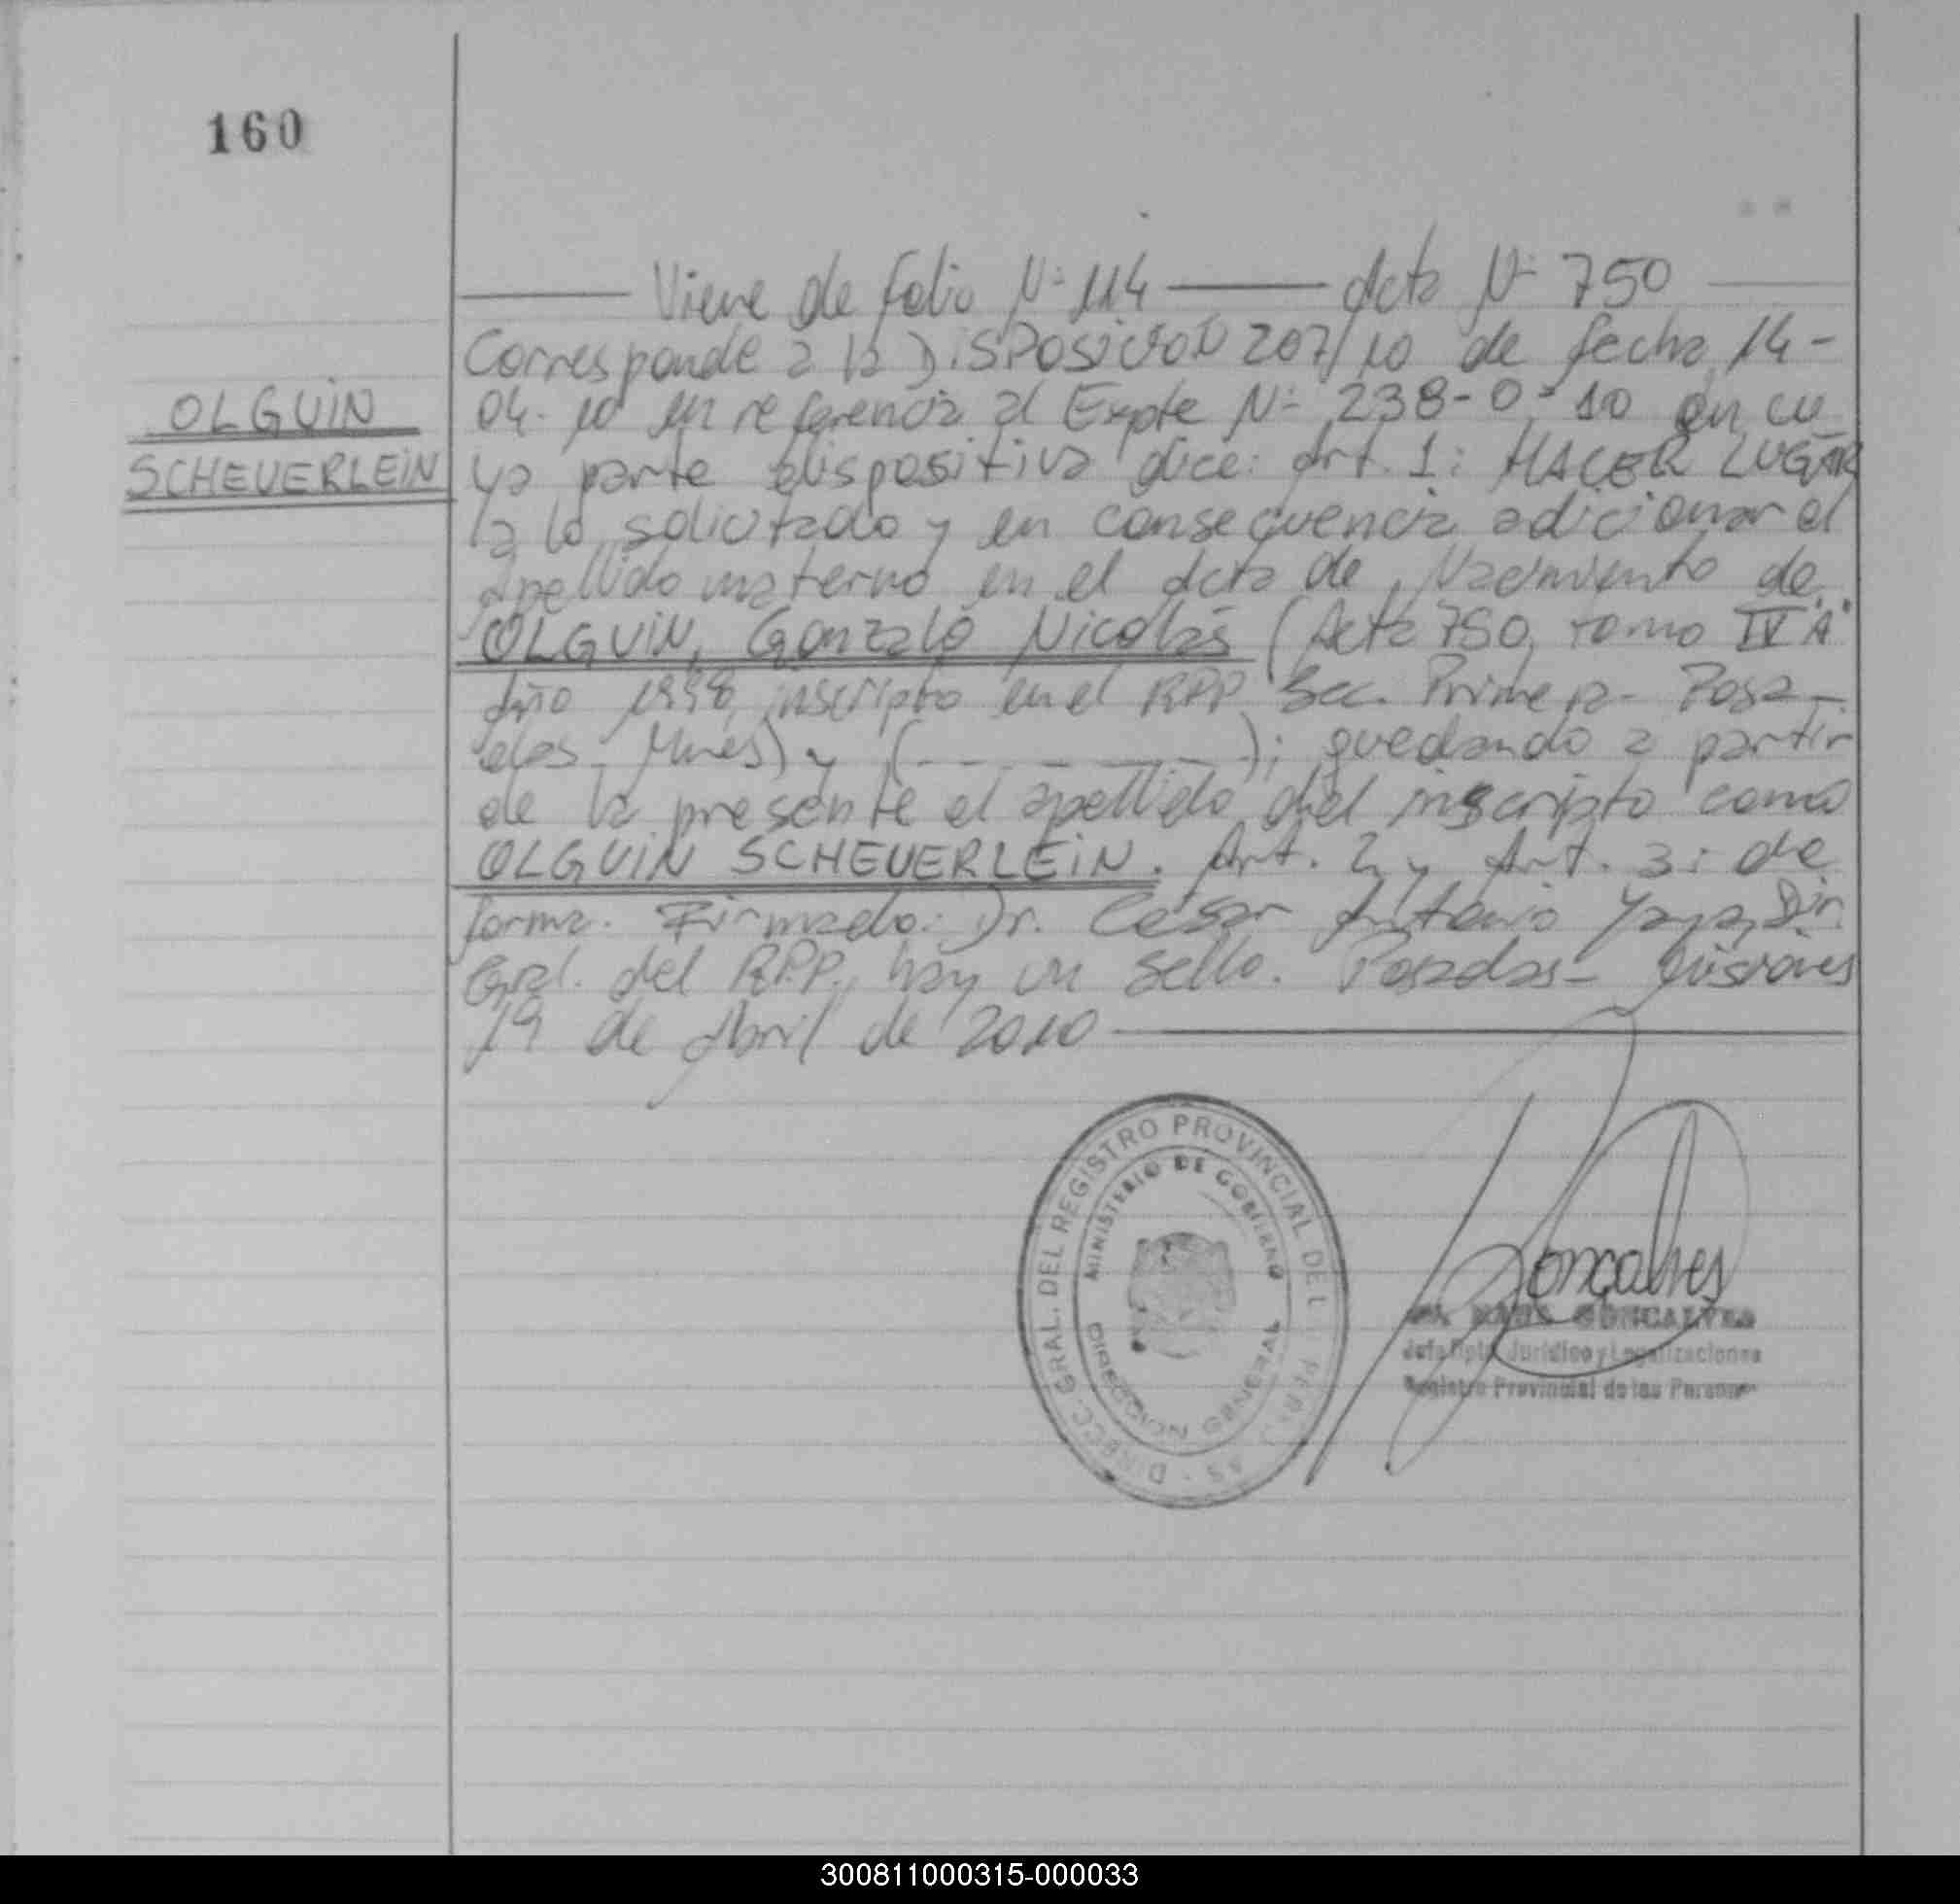 160
Viene de folio Nº 114 — Acta Nº 750
Corresponde a la DISPOSICION 207/10 de fecha 14-
OLGUIN
04-10 en referencia al Expte Nº 238-0-10 en cu
SCHEUERLEIN
ya parte dispositiva dice: Art. 1: HACER LUGAR
a lo solicitado y en consecuencia adicionar el
apellido materno en el Acta de Nacimiento de
OLGUIN, Gonzalo Nicolás (Acta 750, Tomo IV "A"
Año 1998, inscripto en el RPP Sec. Primera - Posa-
das - Mnes) y (- - - - - - -); quedando a partir
de la presente el apellido del inscripto como
OLGUIN SCHEUERLEIN. Art. 2 y Art. 3: de
forma. Firmado: Dr. César Antonio Dir.
Gral. del RPP, hay un sello. Posadas - Misiones
19 de Abril de 2010
DIRECC. GRAL. DEL REGISTRO PROVINCIAL DE
MINISTERIO DE GOBIERNO
DIRECCION GENERAL
Goncalves
GONCALVES
Jefa Dpto. Jurídico y Legalizaciones
Registro Provincial de las Personas
300811000315-000033